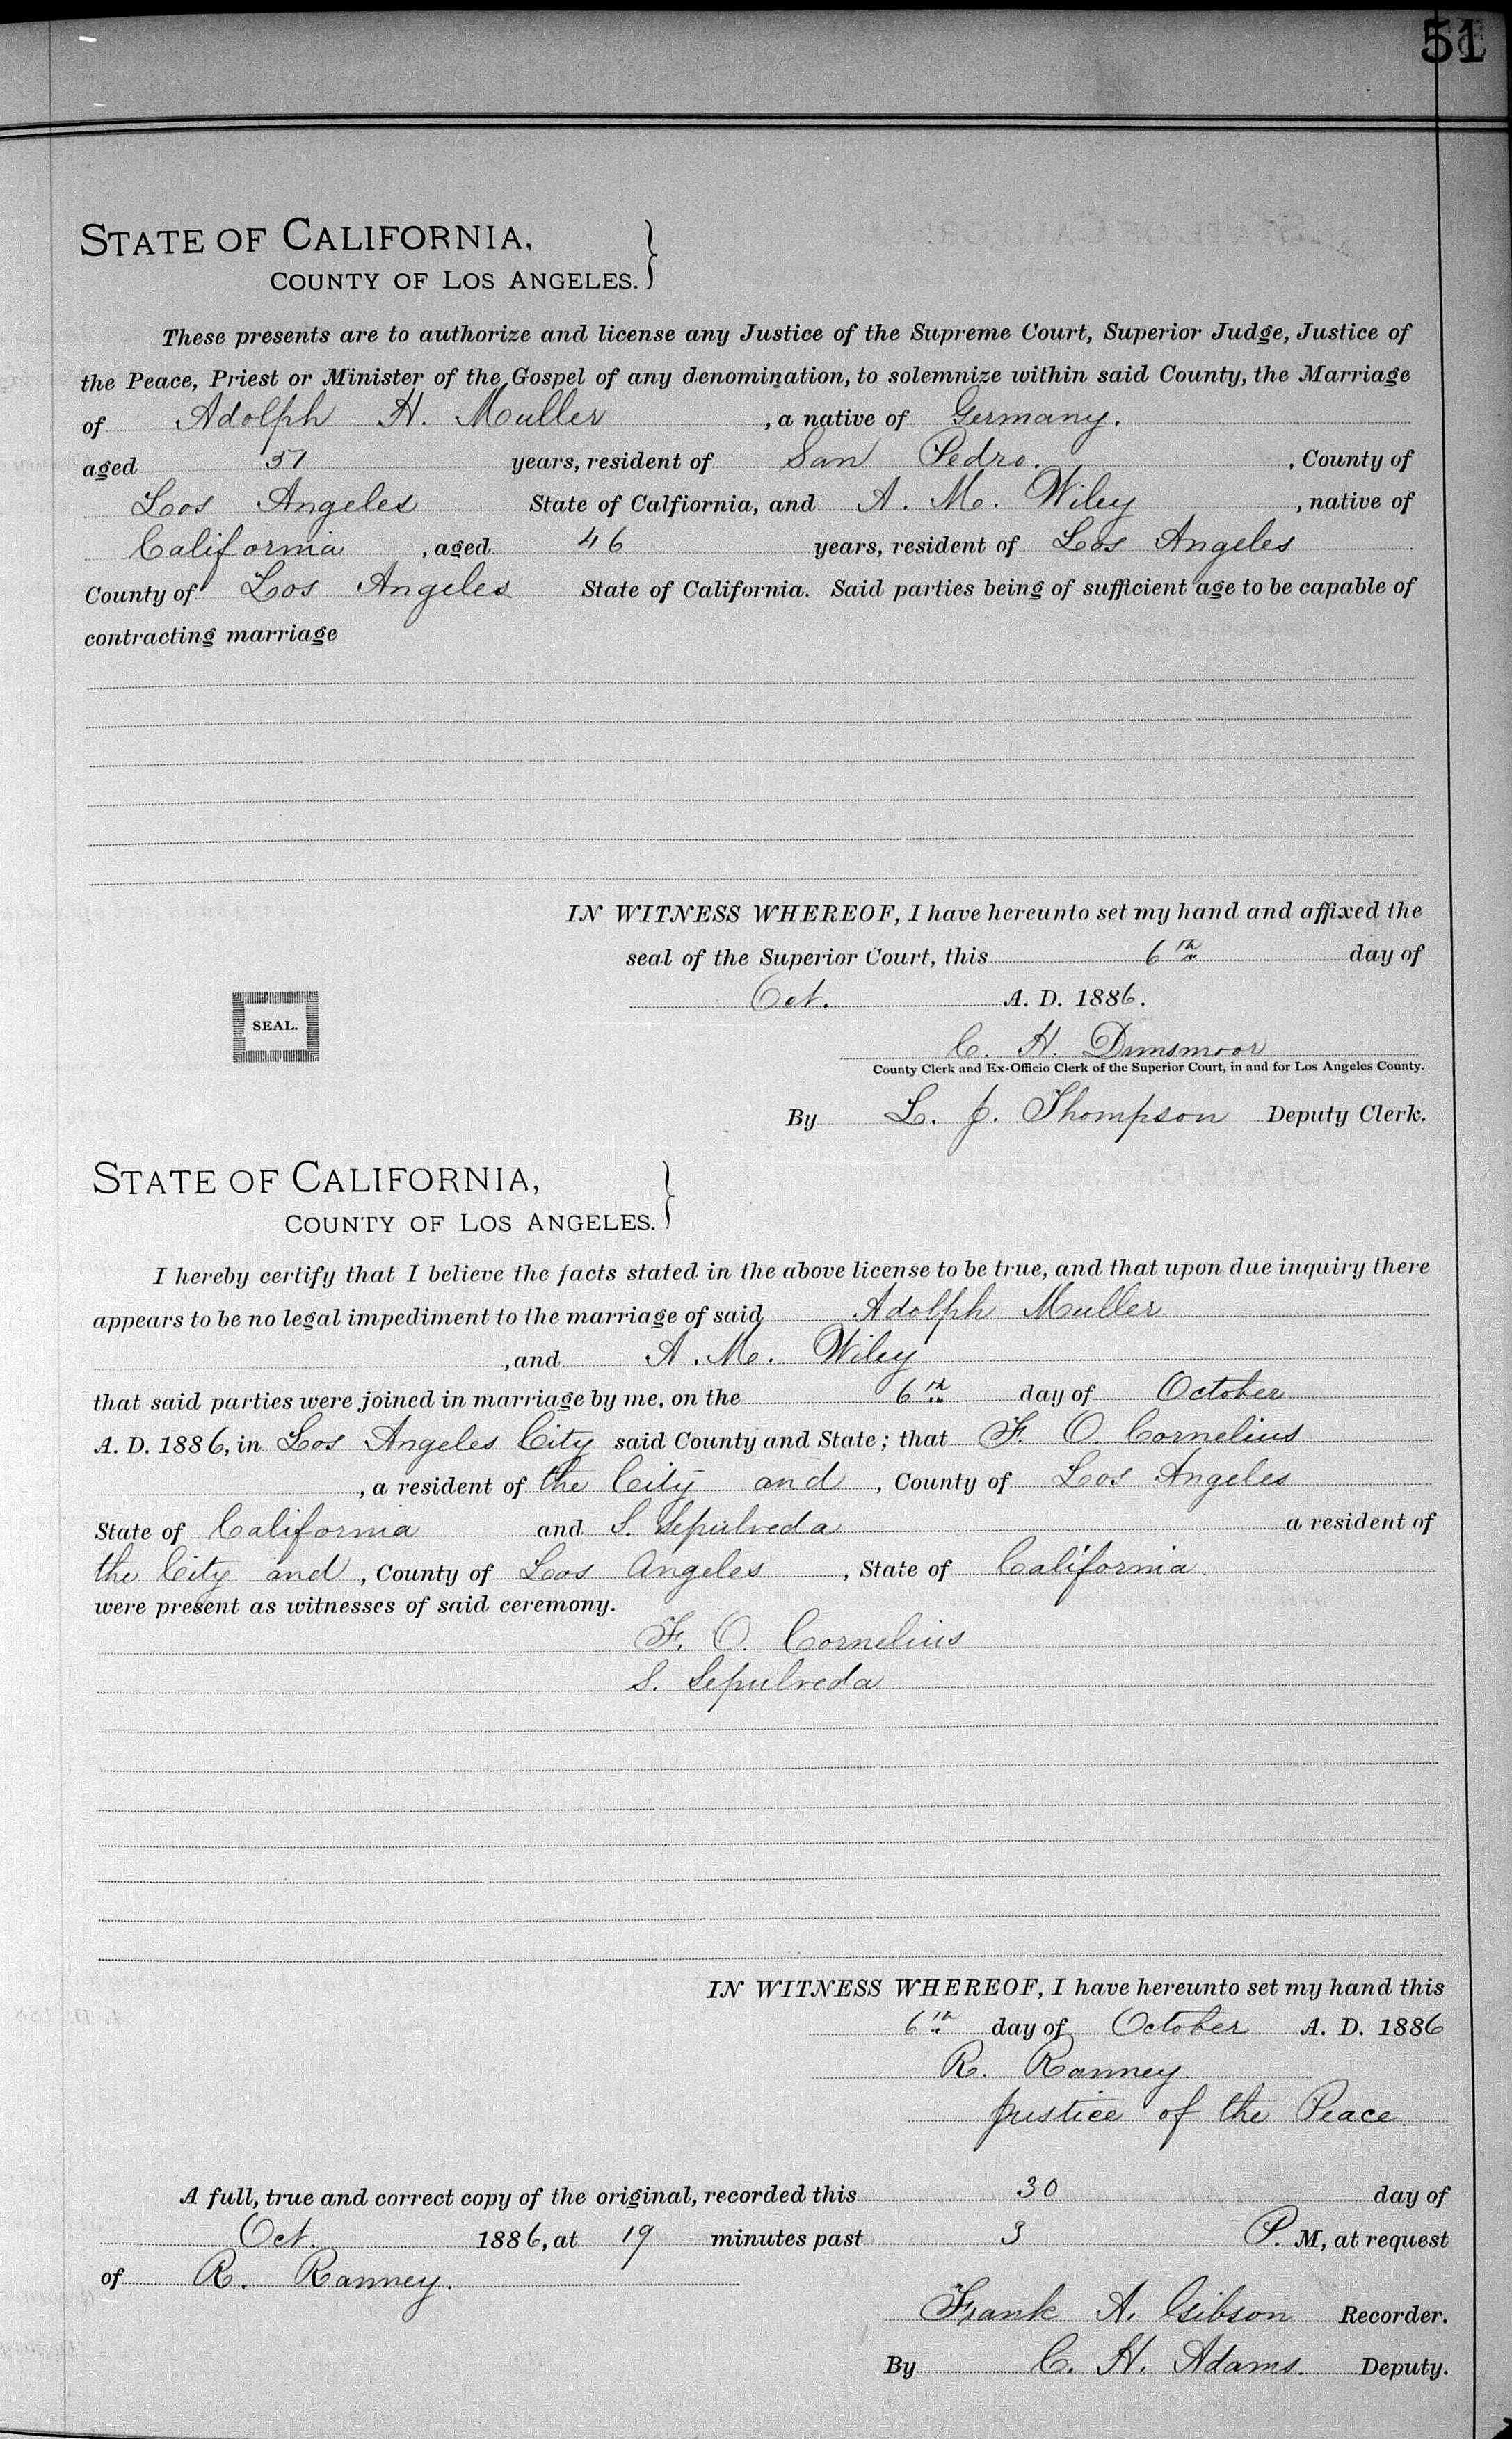 51
STATE OF CALIFORNIA,
COUNTY OF LOS ANGELES. }
These presents are to authorize and license any Justice of the Supreme Court, Superior Judge, Justice of
the Peace, Priest or Minister of the Gospel of any denomination, to solemnize within said County, the Marriage
of Adolph H. Muller , a native of Germany.
aged years, resident of San Pedro. , County of
Los Angeles State of Calfiornia, and A. M. Wiley , native of
California , aged 46 years, resident of Los Angeles
County of Los Angeles State of California. Said parties being of sufficient age to be capable of
contracting marriage
IN WITNESS WHEREOF, I have hereunto set my hand and affixed the
seal of the Superior Court, this 6th day of
Oct. A. D. 1886.
SEAL.
C. H. Dunsmoor
County Clerk and Ex-Officio Clerk of the Superior Court, in and for Los Angeles County.
By L. J. Thompson Deputy Clerk.
STATE OF CALIFORNIA,
COUNTY OF LOS ANGELES. }
I hereby certify that I believe the facts stated in the above license to be true, and that upon due inquiry there
appears to be no legal impediment to the marriage of said Adolph Muller
, and A. M. Wiley
that said parties were joined in marriage by me, on the 6th day of October
A. D. 1886, in Los Angeles City said County and State; that F. O. Cornelius
, a resident of the City and , County of Los Angeles
State of California and S. Sepulveda a resident of
the City and , County of Los Angeles , State of California
were present as witnesses of said ceremony.
F. O. Cornelius
S. Sepulveda
IN WITNESS WHEREOF, I have hereunto set my hand this
6th day of October A. D. 1886
R. Ranney.
Justice of the Peace.
A full, true and correct copy of the original, recorded this 30 day of
Oct. 1886, at 19 minutes past 3 P. M, at request
of R. Ranney.
Frank A. Gibson Recorder.
By C. H. Adams. Deputy.